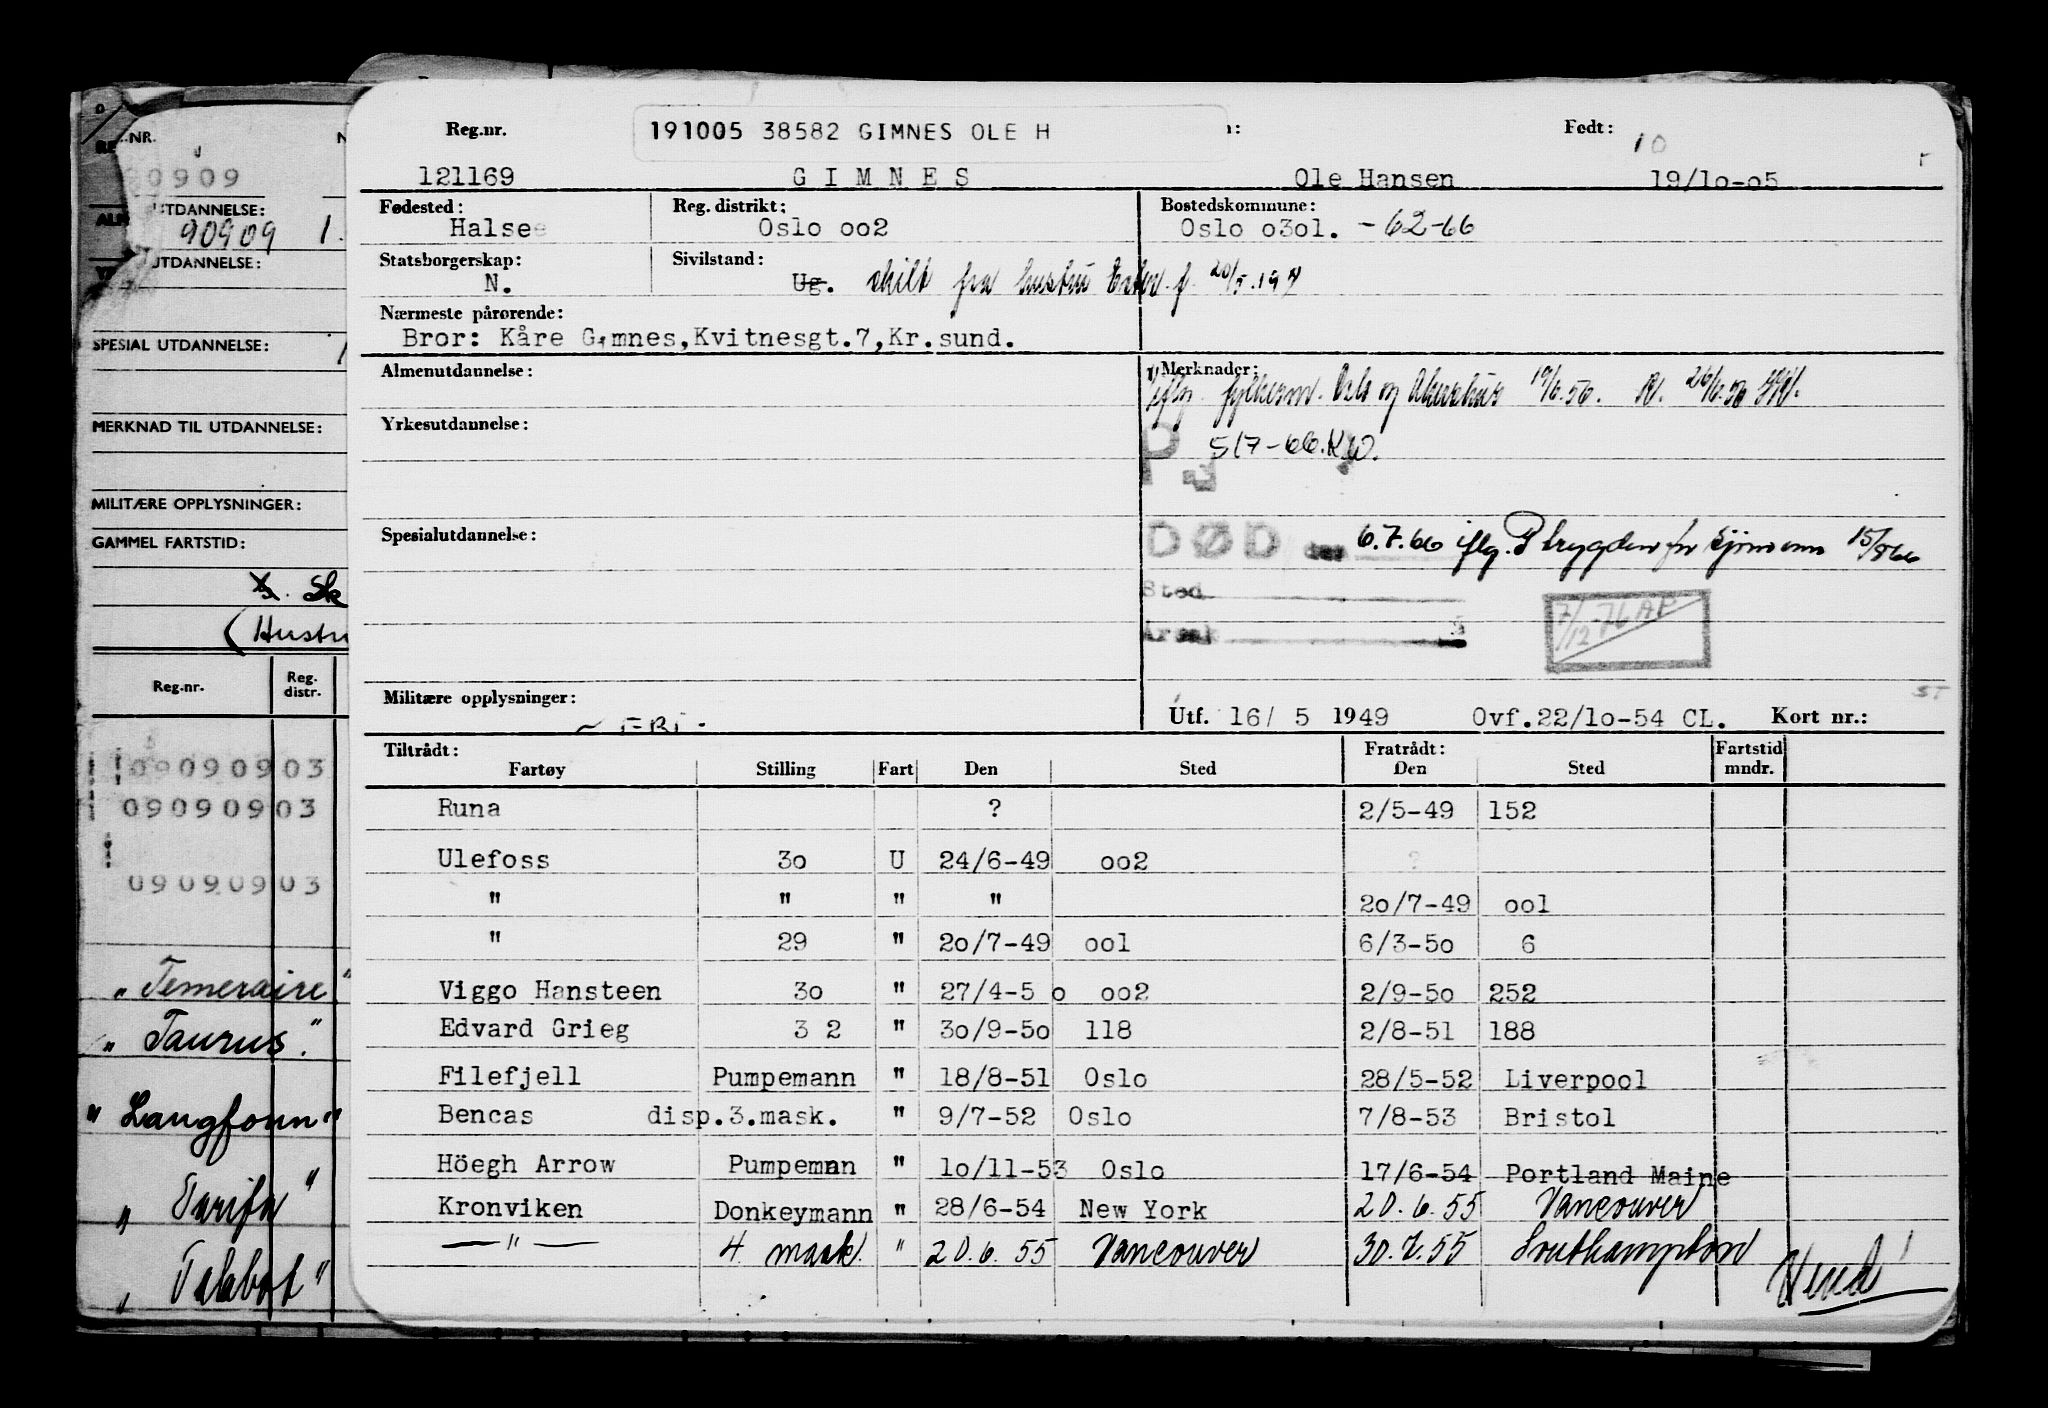 Reg.nr. 191005 38582 GIMNES OLE H Født: 10
121169 GIMNES Ole Hansen 19/lo-o5
Fødested: Reg. distrikt: Bostedskommune:
Halse Oslo oo2 Oslo o3ol. -62-66
Statsborgerskap: Sivilstand:
N. Ug. skilt fra hustru
Nærmeste pårørende:
Bror: Kåre Gimnes,Kvitnesgt.7,Kr.sund.
Almenutdannelse: Merknader:
iflg. fylkesm. Oslo og Akershus 19/6.56. 26/6.56
Yrkesutdannelse:
P. 5/7-66.KW.
Spesialutdannelse: DØD den 6.7.66 iflg. P trygden for Sjømenn 15/8 66
Sted
Årsak
7/12-76 AP
Militære opplysninger: Utf. 16/ 5 1949 Ovf.22/lo-54 CL. Kort nr.:
ST
Tiltrådt: Fratrådt: Fartstid
Fartøy Stilling Fart Den Sted Den Sted mndr.
Runa ? 2/5-49 152
Ulefoss 3o U 24/6-49 oo2 ?
" " " " 2o/7-49 ool
" 29 " 2o/7-49 ool 6/3-5o 6
Viggo Hansteen 3o " 27/4-5 o oo2 2/9-5o 252
Edvard Grieg 3 2 " 3o/9-5o 118 2/8-51 188
Filefjell Pumpemann " 18/8-51 Oslo 28/5-52 Liverpool
Bencas disp.3.mask. " 9/7-52 Oslo 7/8-53 Bristol
Höegh Arrow Pumpeman " lo/11-53 Oslo 17/6-54 Portland Maine
Kronviken Donkeymann " 28/6-54 New York 20.6.55 Vancouver
—"— 4 mask. " 20.6.55 Vancouver 30.7.55 Southampton
Vend!
NR.
90909
UTDANNELSE:
90909 1.
UTDANNELSE:
SPESIAL UTDANNELSE:
MERKNAD TIL UTDANNELSE:
MILITÆRE OPPLYSNINGER:
GAMMEL FARTSTID:
Sk
(Hustr
Reg.nr. Reg. distr.
09090903
09090903
09090903
"Temeraire"
"Taurus."
"Langfonn"
"Tarifa"
"Talabot"